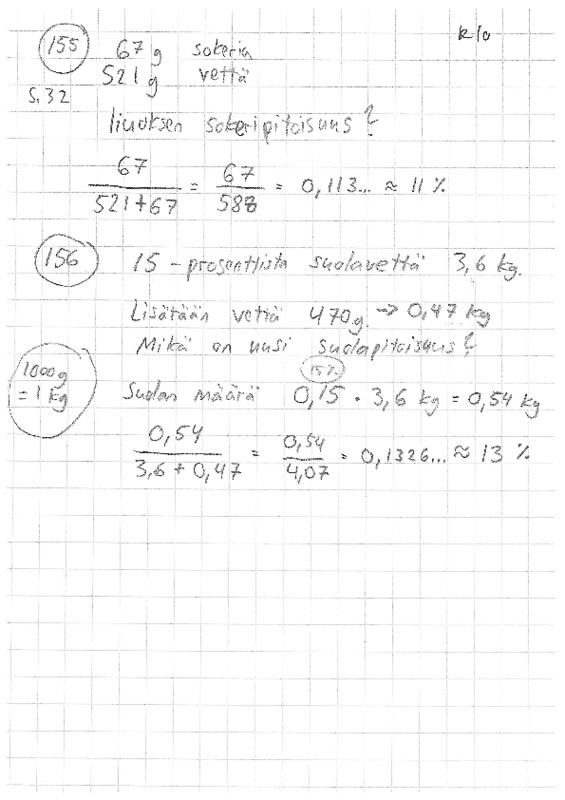 k/o
155 67 g sokeria
521 g vettä
s. 32
liuoksen sokeripitoisuus?
67 / 521+67 = 67 / 588 = 0,113... ≈ 11 %
156 15-prosenttista suolavettä 3,6 kg.
Lisätään vettä 470 g. → 0,47 kg
Mikä on uusi suolapitoisuus?
1000 g = 1 kg
15%
Suolan määrä 0,15 · 3,6 kg = 0,54 kg
0,54 / 3,6 + 0,47 = 0,54 / 4,07 = 0,1326... ≈ 13 %